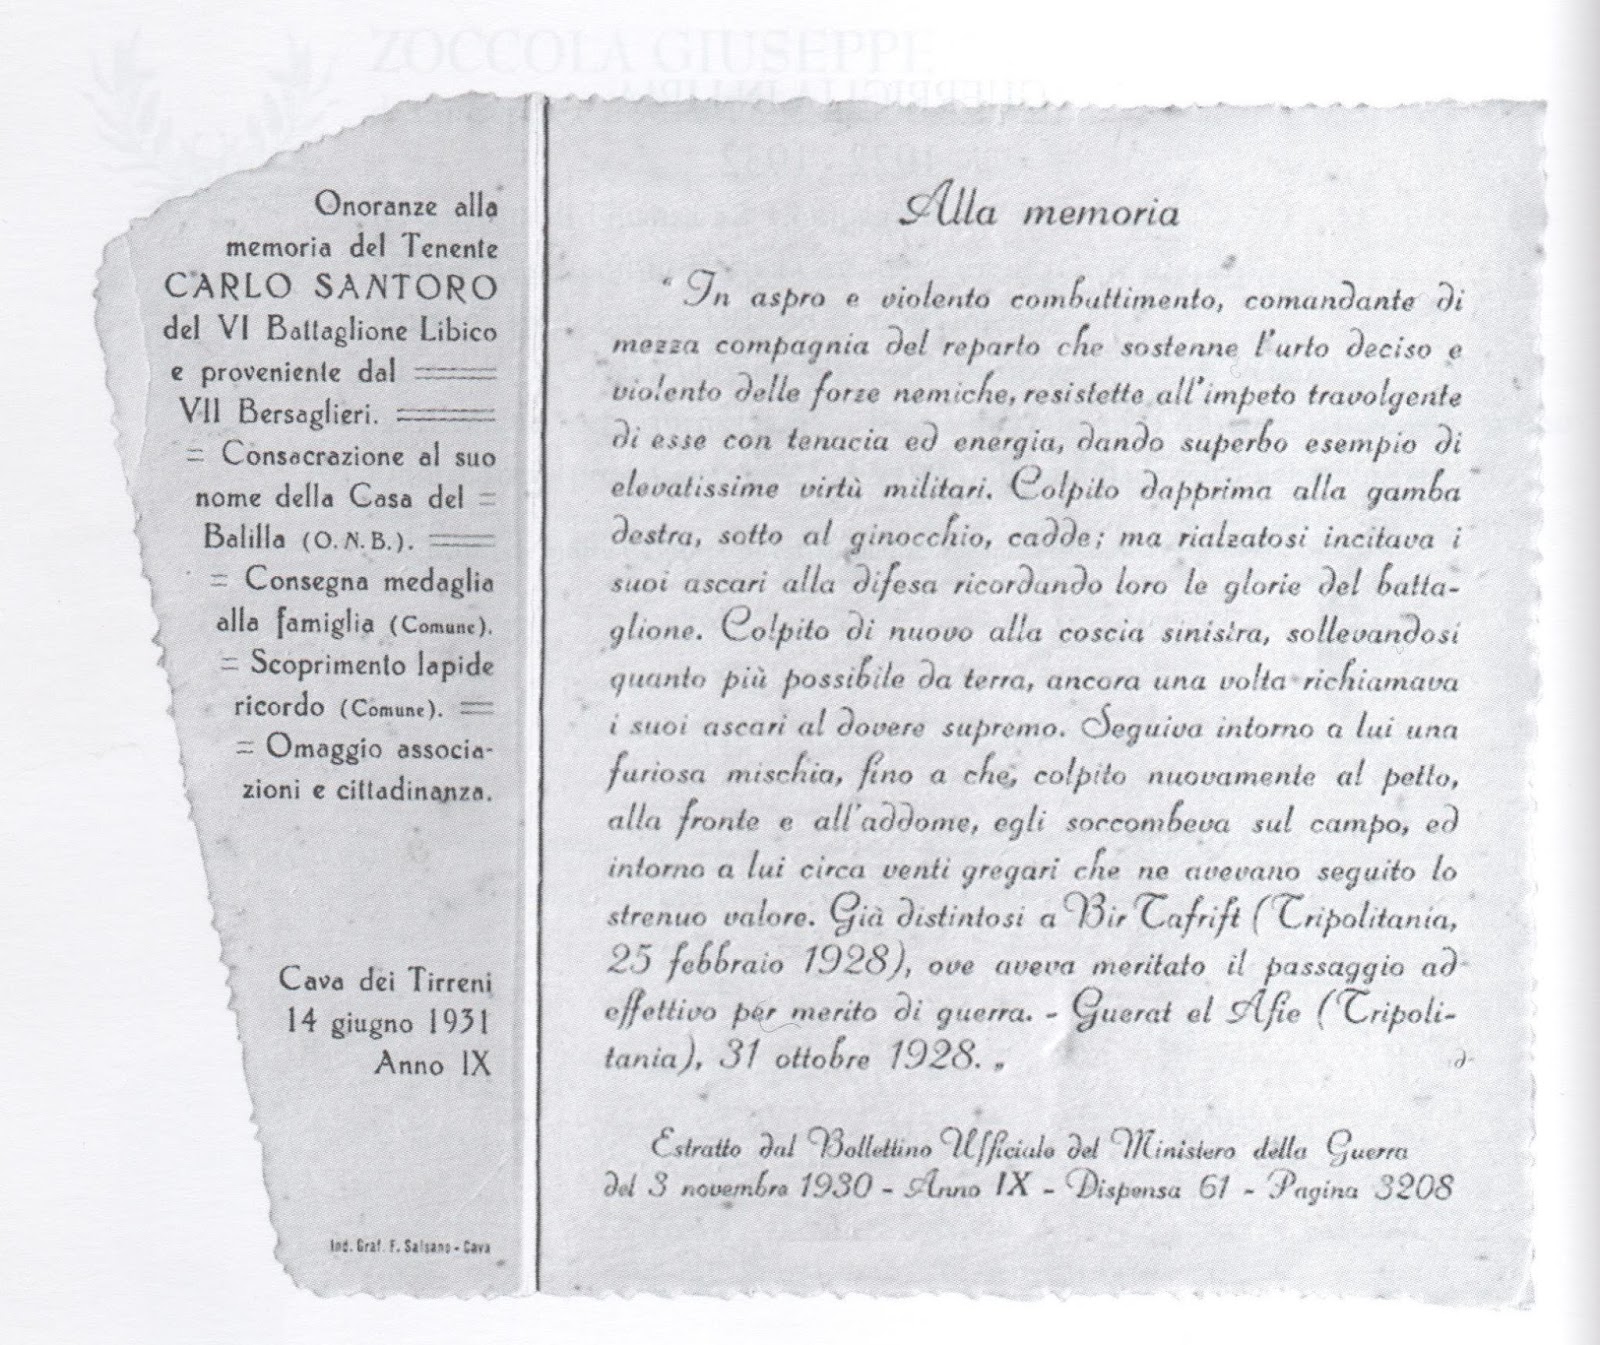 ZOCCOLA GIUSEPPE
Onoranze alla
memoria del Tenente
CARLO SANTORO
del VI Battaglione Libico
e proveniente dal
VII Bersaglieri.
= Consacrazione al suo
nome della Casa del =
Balilla (O. N. B.).
= Consegna medaglia
alla famiglia (Comune).
= Scoprimento lapide
ricordo (Comune).
= Omaggio associa-
zioni e cittadinanza.
Cava dei Tirreni
14 giugno 1931
Anno IX
Ind. Graf. F. Salsano - Cava
Alla memoria
" In aspro e violento combattimento, comandante di
mezza compagnia del reparto che sostenne l'urto deciso e
violento delle forze nemiche, resistette all'impeto travolgente
di esse con tenacia ed energia, dando superbo esempio di
elevatissime virtù militari. Colpito dapprima alla gamba
destra, sotto al ginocchio, cadde; ma rialzatosi incitava i
suoi ascari alla difesa ricordando loro le glorie del batta-
glione. Colpito di nuovo alla coscia sinistra, sollevandosi
quanto più possibile da terra, ancora una volta richiamava
i suoi ascari al dovere supremo. Seguiva intorno a lui una
furiosa mischia, fino a che, colpito nuovamente al petto,
alla fronte e all'addome, egli soccombeva sul campo, ed
intorno a lui circa venti gregari che ne avevano seguito lo
strenuo valore. Già distintosi a Bir Tafrift (Tripolitania,
25 febbraio 1928), ove aveva meritato il passaggio ad
effettivo per merito di guerra. - Guerat el Afie (Tripoli-
tania), 31 ottobre 1928. „
Estratto dal Bollettino Ufficiale del Ministero della Guerra
del 3 novembre 1930 - Anno IX - Dispensa 61 - Pagina 3208